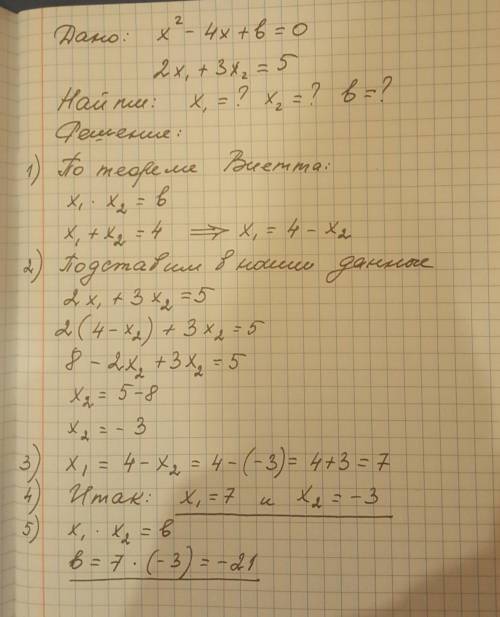 Дано: x² - 4x + в = 0
2x₁ + 3x₂ = 5
Найти: x₁ = ? x₂ = ? в = ?
Решение:
1) По теореме Виетта:
x₁ · x₂ = в
x₁ + x₂ = 4 ⟹ x₁ = 4 - x₂
2) Подставим в наши данные
2x₁ + 3x₂ = 5
2(4 - x₂) + 3x₂ = 5
8 - 2x₂ + 3x₂ = 5
x₂ = 5 - 8
x₂ = - 3
3) x₁ = 4 - x₂ = 4 - (-3) = 4 + 3 = 7
4) Итак: x₁ = 7 и x₂ = - 3
5) x₁ · x₂ = в
в = 7 · (-3) = -21